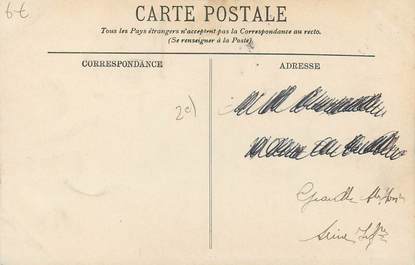 6€
CARTE POSTALE
Tous les Pays étrangers n'acceptent pas la Correspondance au recto.
(Se renseigner à la Poste)
CORRESPONDANCE
ADRESSE
Grande
Seine Infre